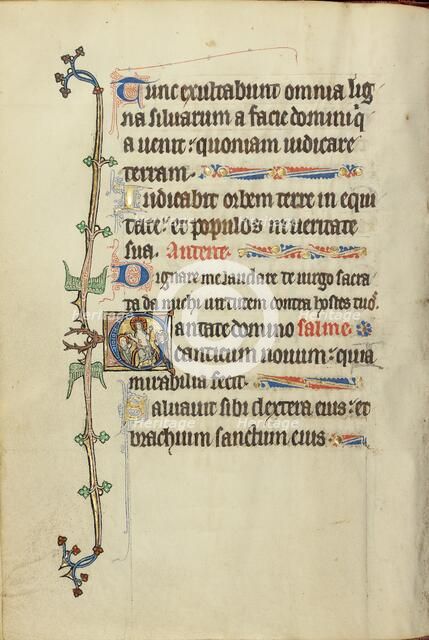 Tunc exultabunt omnia lig
na siluarum a facie domini q
a uenit: quoniam iudicare
terram.
Iudicabit orbem terre in equi
tate: et populos in ueritate
sua. Antene.
Dignare me laudare te uirgo sacra
ta da michi uirtutem contra hostes tuos.
Cantate domino salme.
canticum nouum: quia
mirabilia fecit.
Saluauit sibi dextera eius: et
brachium sanctum eius
Heritage
Heritage
Heritage
Heritage
Heritage
Heritage